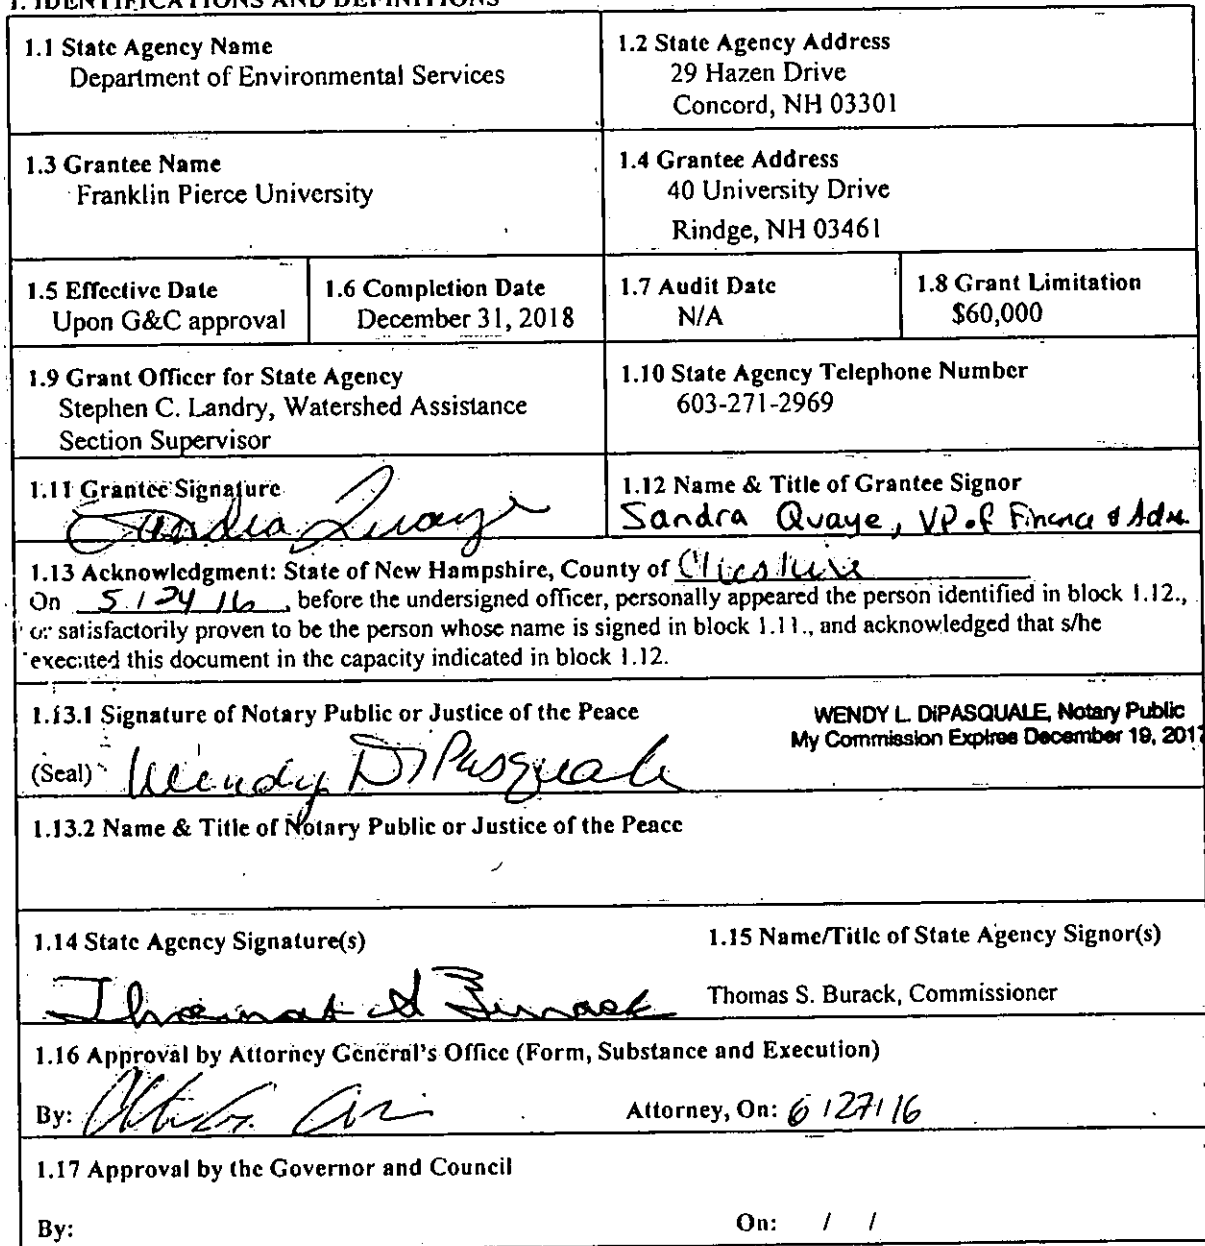 1. IDENTIFICATIONS AND DEFINITIONS
1.1 State Agency Name
Department of Environmental Services
1.2 State Agency Address
29 Hazen Drive
Concord, NH 03301
1.3 Grantee Name
Franklin Pierce University
1.4 Grantee Address
40 University Drive
Rindge, NH 03461
1.5 Effective Date
Upon G&C approval
1.6 Completion Date
December 31, 2018
1.7 Audit Date
N/A
1.8 Grant Limitation
$60,000
1.9 Grant Officer for State Agency
Stephen C. Landry, Watershed Assistance
Section Supervisor
1.10 State Agency Telephone Number
603-271-2969
1.11 Grantee Signature
Sandra Quaye
1.12 Name & Title of Grantee Signor
Sandra Quaye, VP of Finance & Adm.
1.13 Acknowledgment: State of New Hampshire, County of Cheshire
On 5/24/16, before the undersigned officer, personally appeared the person identified in block 1.12.,
or satisfactorily proven to be the person whose name is signed in block 1.11., and acknowledged that s/he
executed this document in the capacity indicated in block 1.12.
1.13.1 Signature of Notary Public or Justice of the Peace
WENDY L. DiPASQUALE, Notary Public
My Commission Expires December 19, 2017
(Seal) Wendy DiPasquale
1.13.2 Name & Title of Notary Public or Justice of the Peace
1.14 State Agency Signature(s)
Thomas S Burack
1.15 Name/Title of State Agency Signor(s)
Thomas S. Burack, Commissioner
1.16 Approval by Attorney General's Office (Form, Substance and Execution)
By: Attorney, On: 6/27/16
1.17 Approval by the Governor and Council
By: On: / /